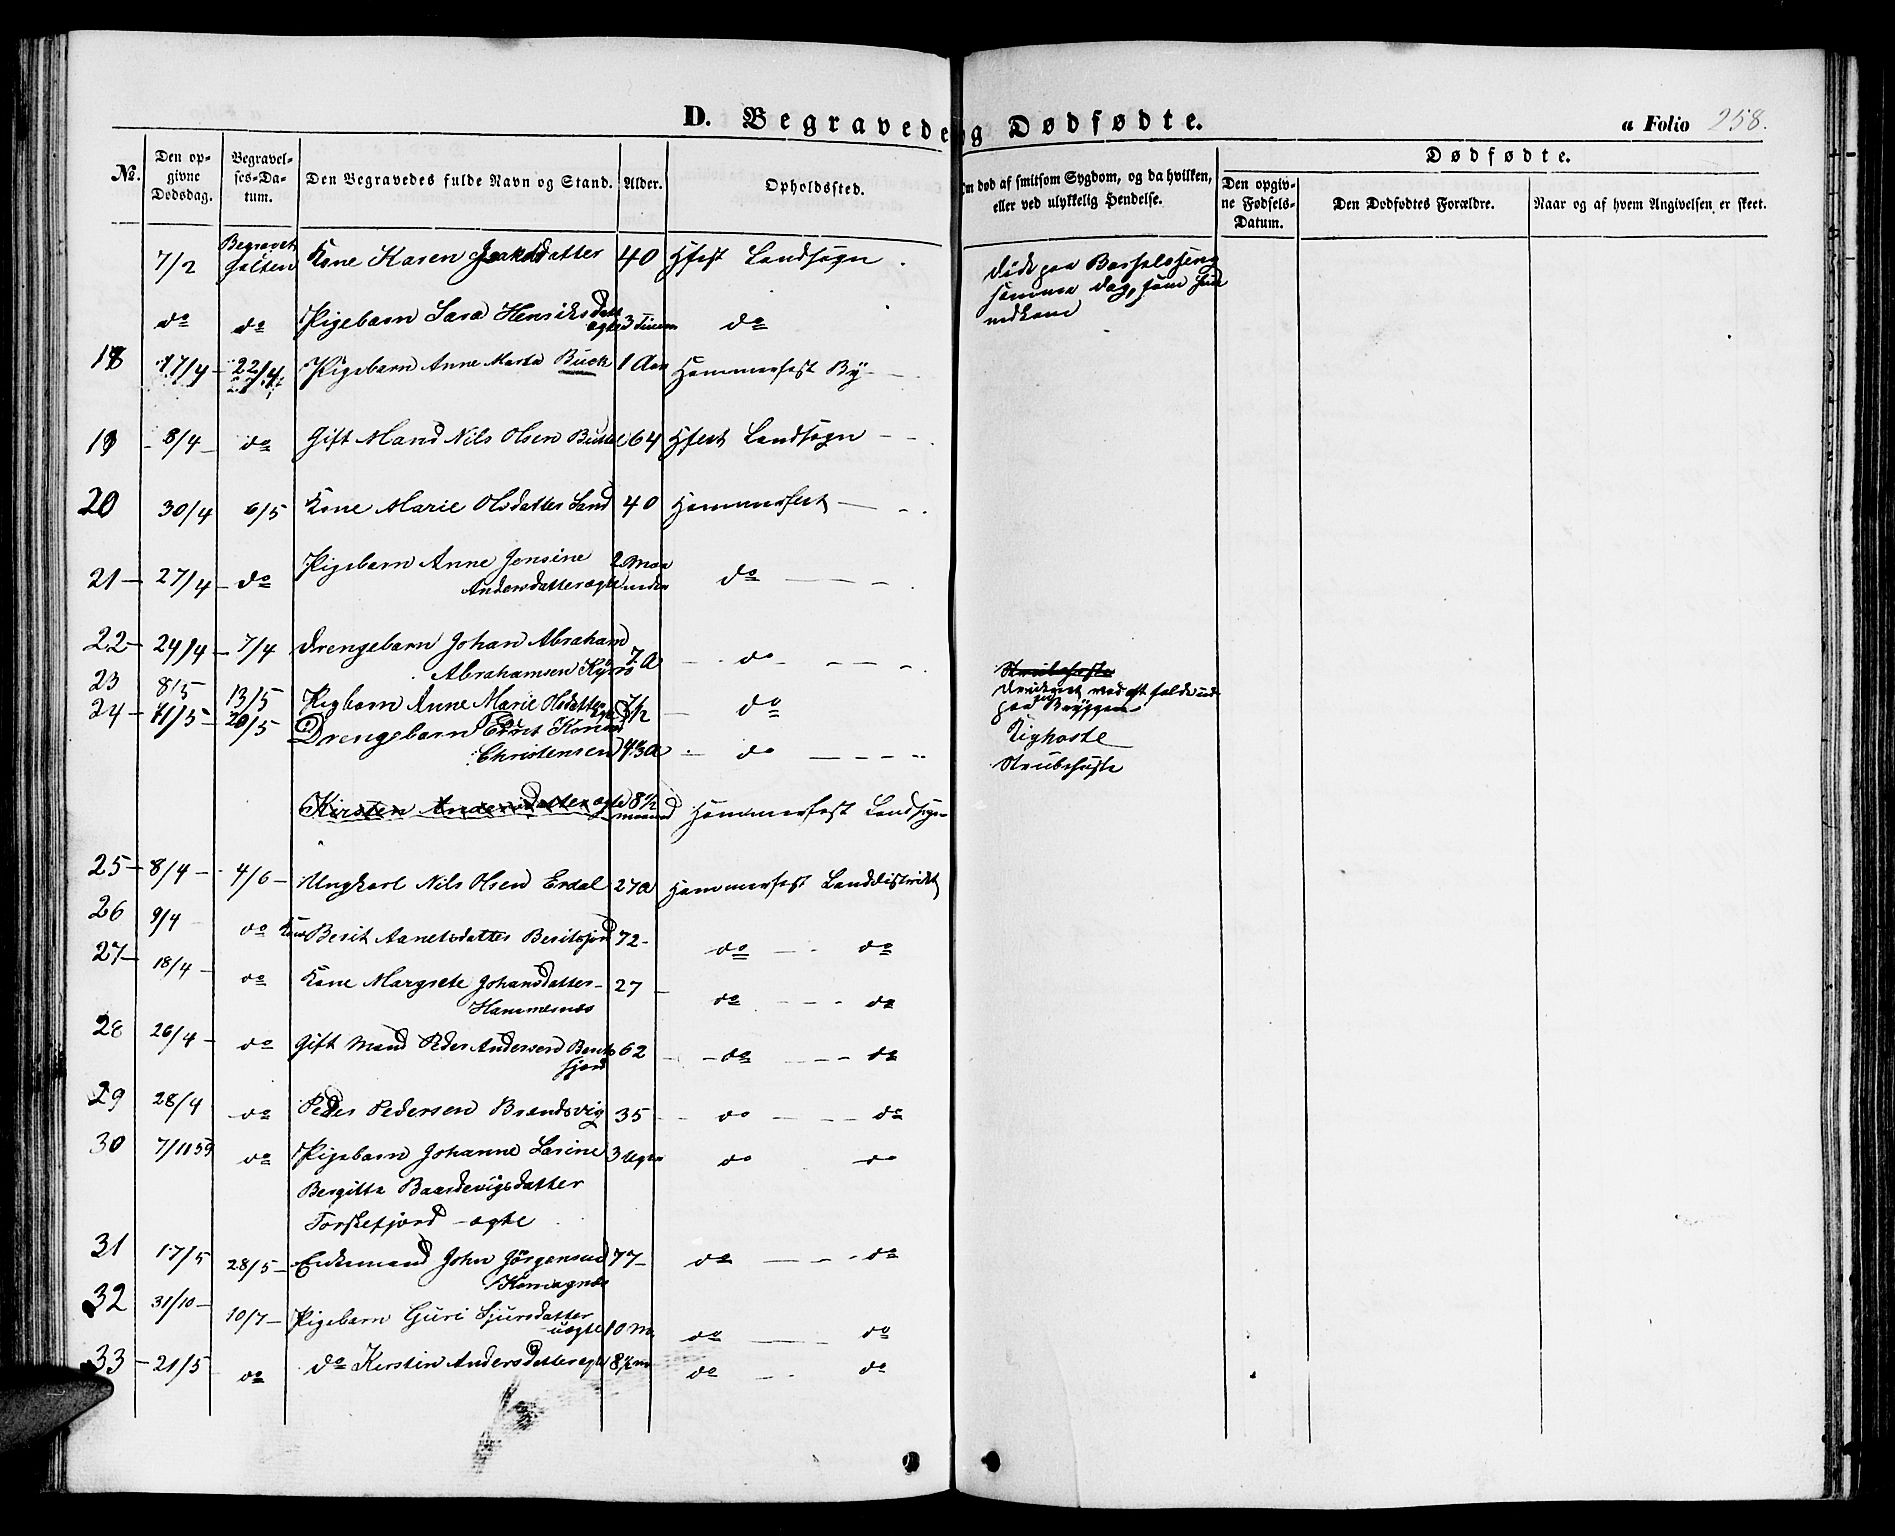 D. Begravede og Dødfødte.
a Folio 258.
No.
Den opgivne Dødsdag.
Begravelses-Datum.
Den Begravedes fulde Navn og Stand.
Alder.
Opholdssted.
Om død af smitsom Sygdom, og da hvilken, eller ved ulykkelig Hendelse.
Dødfødte.
Den opgivne Fødsels-Datum.
Den Dødfødtes Forældre.
Naar og af hvem Angivelsen er skeet.
7/2 Begravet Kone Karen 40 Hfest Landsogn
Døde paa Barselseng
samme Dag, som hun
nedkom
do do Pigebarn Sara Henriksdatt
ægte 3 Timer do
18 17/4 22/4 Pigebarn Anne Marta Buck 1 Aar Hammerfest By
19 8/4 do Gift Mand Nils Olsen 64 Hfest Landsogn
20 30/4 6/5 Kone Marie Olsdatter Sand 40 Hammerfest
21 27/4 do Pigebarn Anne Jensine
Andersdatter ægte 2 Maaneder do
22 24/4 7/4 Drengebarn Johan Abraham
Abrahamsen 7 A do
23 8/5 13/5 Pigbarn Anne Marie Olsdatter do
Druknet ved at falde ud
paa Bryggen
24 11/5 20/5 Drengebarn Konrad
Christensen do
Kighoste
Strubehoste
Kirsten Andersdatter ægte 8 1/2 maaned Hammerfest Landsogn
25 8/4 4/6 Ungkarl Nils Olsen Erdal 27 a Hammerfest Landdistrikt
26 9/4 do Kone Berit Beritsfjord 72 do do
27 18/4 do Kone Margrete Johansdatter
Hammernæs 27 do do
28 26/4 do Gift Mand Peder Andersen Berits
fjord 62 do do
29 28/4 do Peder Pedersen Brandsvig 35 do do
30 7/11 59 do Pigebarn Johanne Larine 3 Uger do do
Bergitta Baardevigsdatter
Torskefjord ægte
31 17/5 28/5 Enkemand John Jørgensen 77 do do
Komagnæs
32 31/10 10/7 Pigebarn Guri Sjursdatter
uægte 10 M do do
33 21/5 do do Kirstin Andersdatter ægte 8 1/2 m do do